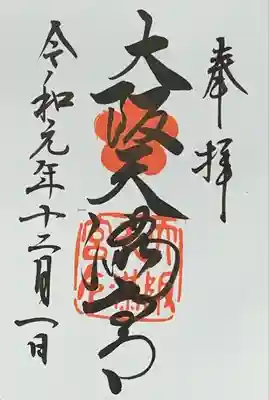 奉拝
大阪天満宮
令和元年十二月一日